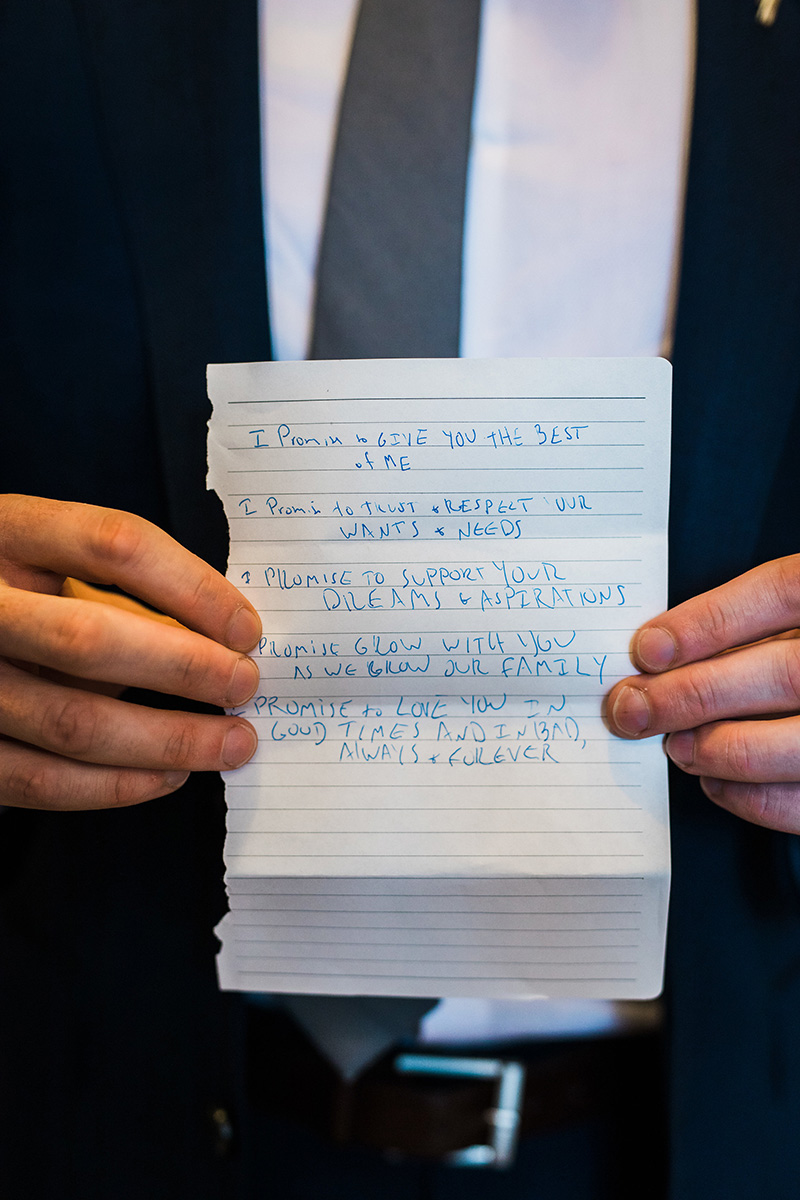 I Promise to GIVE YOU THE BEST
of ME
I Promise to TRUST & RESPECT OUR
WANTS & NEEDS
I PROMISE TO SUPPORT YOUR
DREAMS & ASPIRATIONS
PROMISE GROW WITH YOU
AS WE GROW OUR FAMILY
I PROMISE to LOVE YOU IN
GOOD TIMES AND IN BAD,
ALWAYS & FOREVER